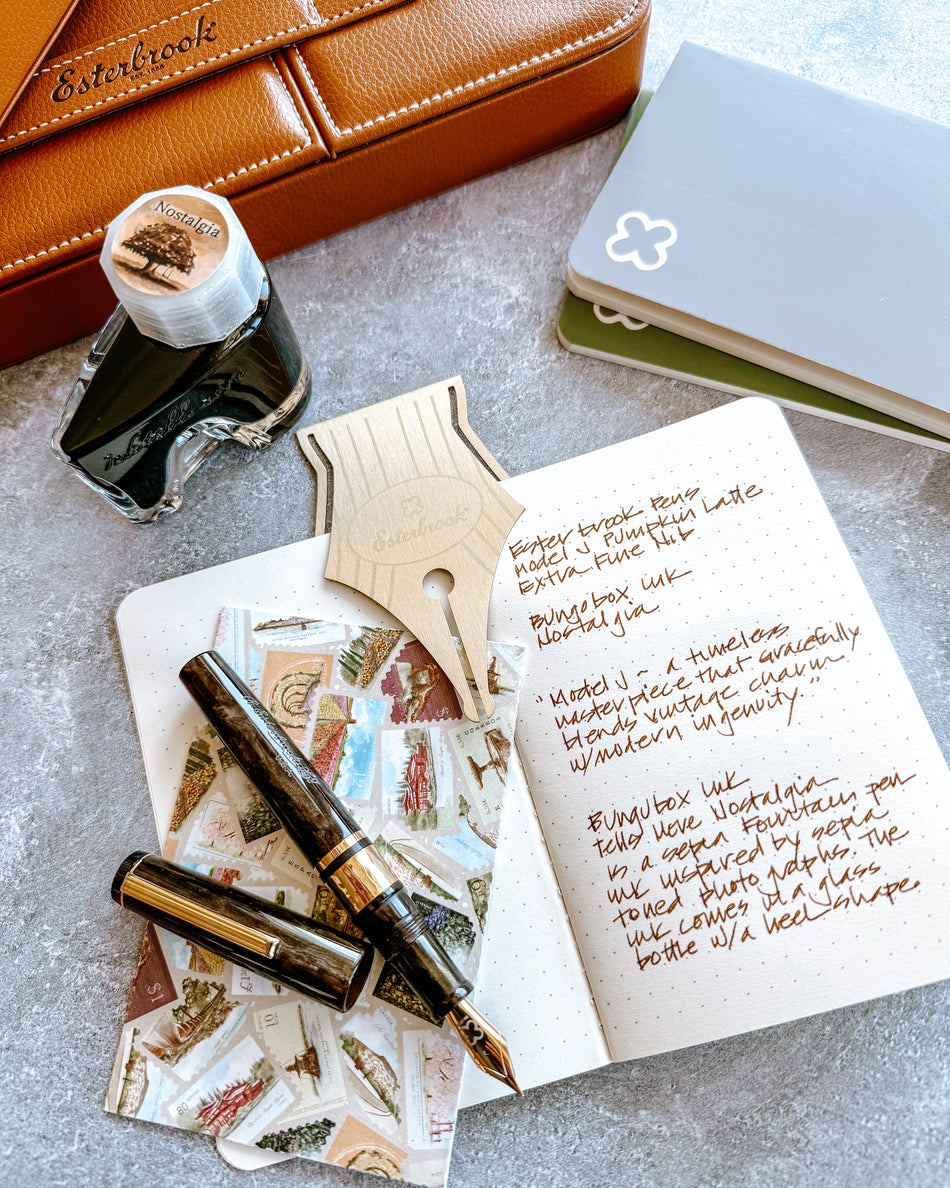 Esterbrook
EST. 1858
Nostalgia
Ink tells more
Esterbrook
Esterbrook Pens
Model J Pumpkin Latte
Extra Fine Nib
Bungobox Ink
Nostalgia
"Model J ~ a timeless
masterpiece that gracefully
blends vintage charm
w/modern ingenuity."
Bungubox Ink
tells more Nostalgia
is a sepia fountain pen
ink inspired by sepia
toned photographs. The
ink comes in a glass
bottle w/a heel shape.